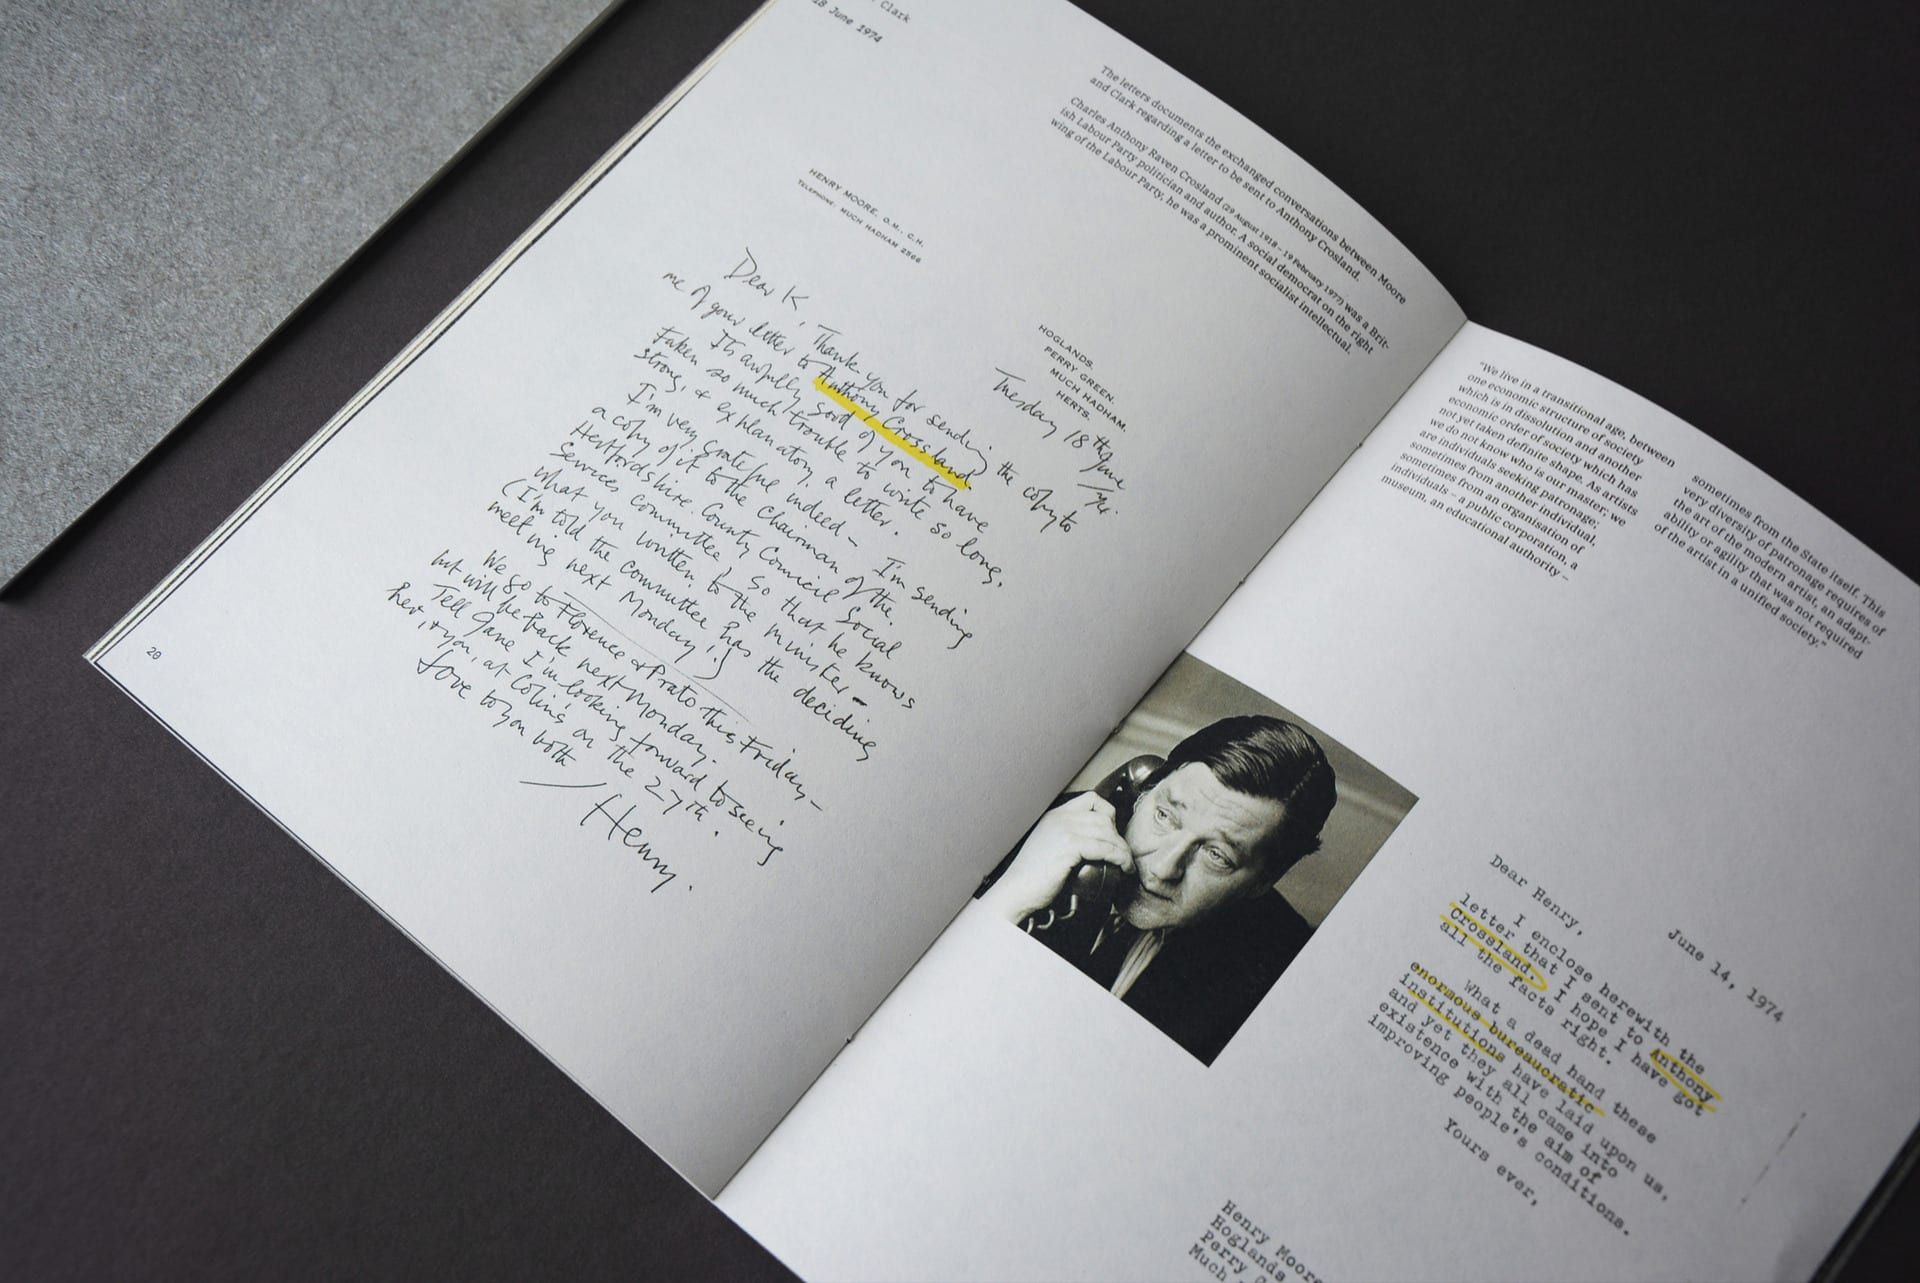 Clark
18 June 1974
The letters documents the exchanged conversations between Moore
and Clark regarding a letter to be sent to Anthony Crosland.
Charles Anthony Raven Crosland (29 August 1918 – 19 February 1977) was a Brit-
ish Labour Party politician and author. A social democrat on the right
wing of the Labour Party, he was a prominent socialist intellectual.
HENRY MOORE, O.M., C.H.
TELEPHONE: MUCH HADHAM 2566
HOGLANDS,
PERRY GREEN,
MUCH HADHAM,
HERTS.
Tuesday 18th June
/74.
Dear K,
Thank you for sending the copy to
me of your letter to Anthony Crossland.
Its awfully good of you to have
taken so much trouble to write so long,
strong, & explanatory, a letter.
I'm very grateful indeed – I'm sending
a copy of it to the chairman of the
Hertfordshire County Council Social
Services committee, so that he knows
what you written to the minister –
(I'm told the committee has the deciding
meeting next Monday!)
We go to Florence & Prato this Friday –
but will be back next Monday.
Tell Jane I'm looking forward to seeing
her, & you, at Colins on the 27th.
Love to you both
Henry.
20
"We live in a transitional age, between
one economic structure of society
which is in dissolution and another
economic order of society which has
not yet taken definite shape. As artists
we do not know who is our master; we
are individuals seeking patronage;
sometimes from another individual,
sometimes from an organisation of
individuals – a public corporation, a
museum, an educational authority –
sometimes from the State itself. This
very diversity of patronage requires of
the art of the modern artist, an adapt-
ability or agility that was not required
of the artist in a unified society."
June 14, 1974
Dear Henry,
I enclose herewith the
letter that I sent to Anthony
Crossland. I hope I have got
all the facts right.
What a dead hand these
enormous bureaucratic
institutions have laid upon us,
and yet they all came into
existence with the aim of
improving people's conditions.
Yours ever,
Henry Moore
Hoglands
Perry
Much